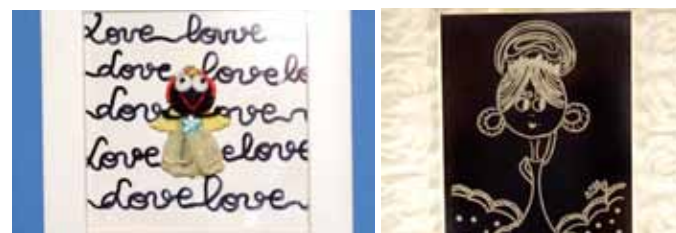 Love love
Love lovelo
Love ove
Love elove
Love love